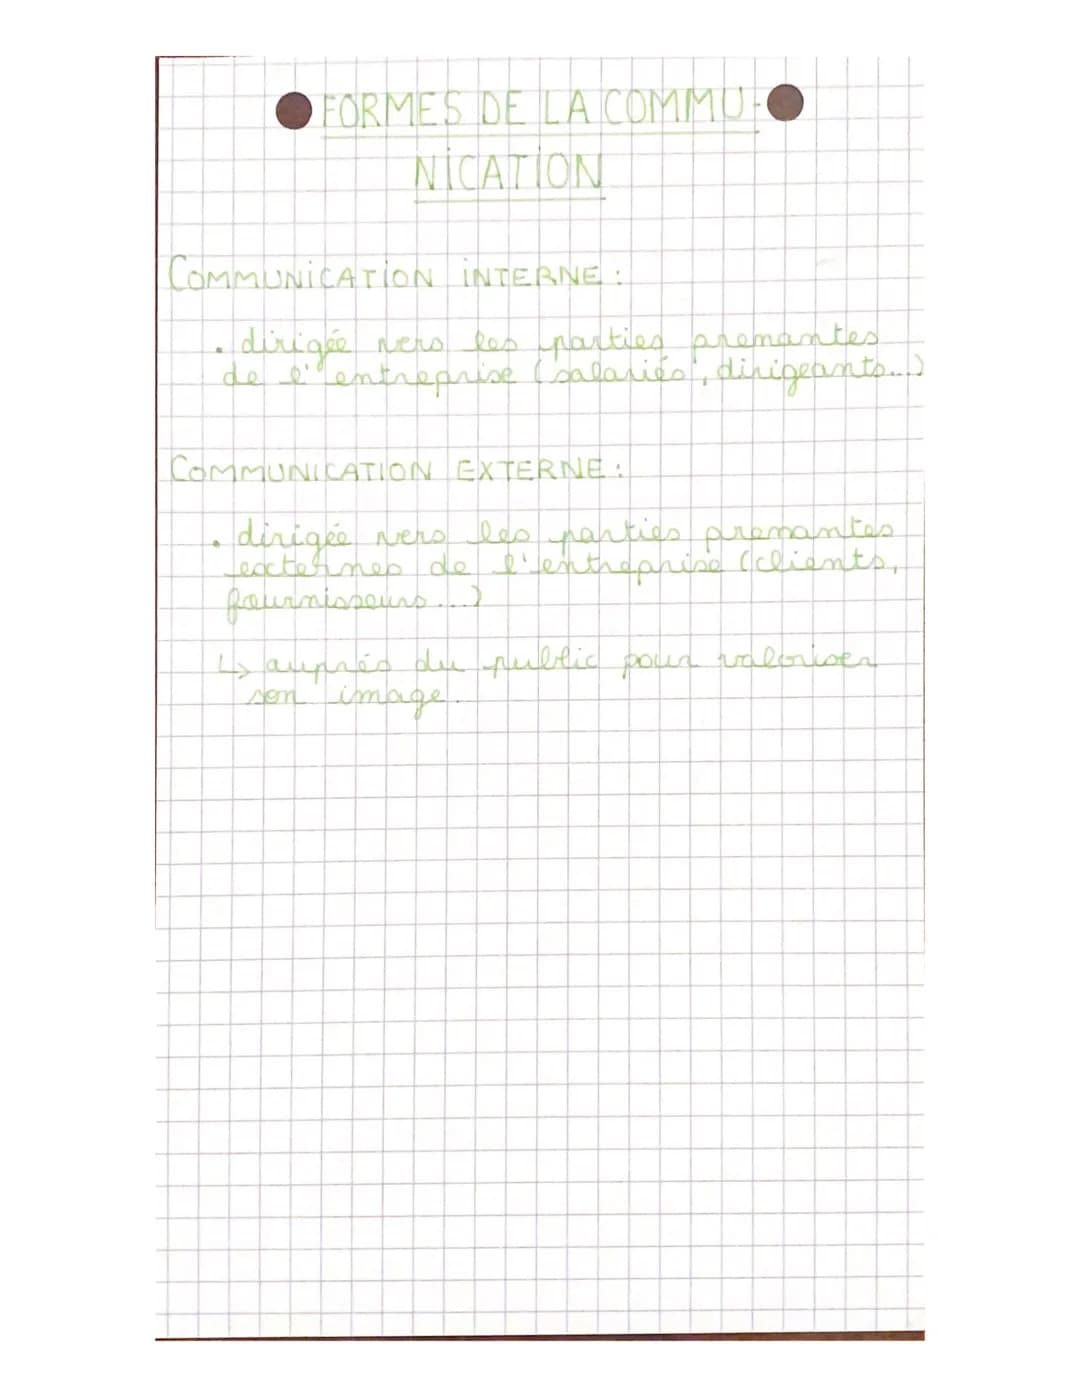 FORMES DE LA COMMU-
NICATION
COMMUNICATION INTERNE :
• dirigée vers les parties prenantes
de l'entreprise (salariés, dirigeants...)
COMMUNICATION EXTERNE :
• dirigée vers les parties prenantes
externes de l'entreprise (clients,
fournisseurs...)
↳ auprès du public pour valoriser
son image.